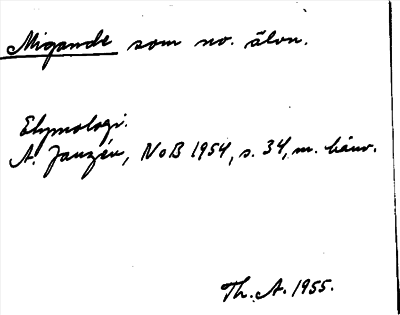 Migande som no. älvn.
Etymologi.
A. Janzén, NoB 1954, s. 34, m. hänv.
Th. A. 1955.